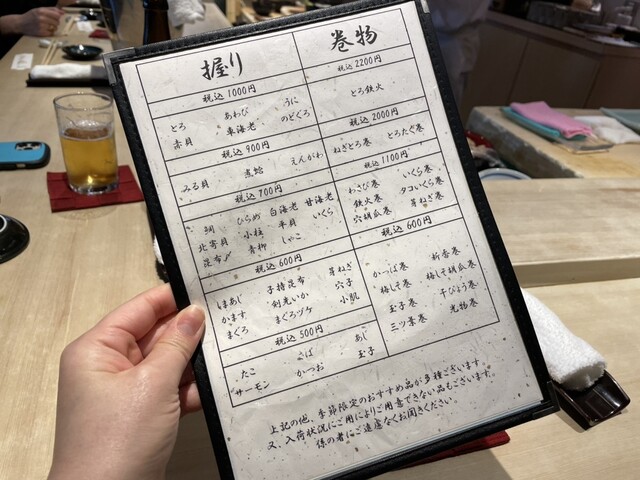 握り
税込 1000円
とろ あわび うに
赤貝 車海老 のどぐろ
税込 900円
みる貝 煮蛤 えんがわ
税込 700円
鯛 ひらめ 白海老 甘海老
北寄貝 小柱 平貝 いくら
昆布〆 青柳 しゃこ
税込 600円
しまあじ 子持昆布 芽ねぎ
かます 剣先いか 穴子
まぐろ まぐろヅケ 小肌
税込 500円
たこ さば あじ
サーモン かつお 玉子
巻物
税込 2200円
とろ鉄火
税込 2000円
ねぎとろ巻 とろたく巻
税込 1100円
わさび巻 いくら巻
鉄火巻 タコいくら巻
穴胡瓜巻 芽ねぎ巻
税込 600円
かっぱ巻 新香巻
梅しそ巻 梅しそ胡瓜巻
玉子巻 干ぴょう巻
三ツ葉巻 光物巻
上記の他、季節限定のおすすめ品が多種ございます。
又、入荷状況にご用によりご用意できない品もございます。
係の者にご遠慮なくお聞きください。